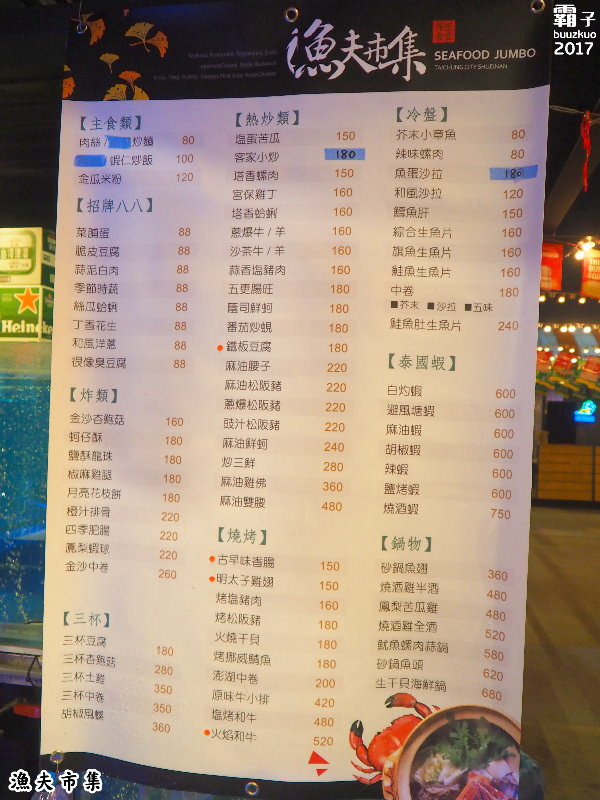 霸子
buuzkuo
2017
漁夫市集
SEAFOOD JUMBO
TAICHUNG CITY SHUEINAN
【主食類】
肉絲/炒麵 80
/蝦仁炒飯 100
金瓜米粉 120
【招牌八八】
菜脯蛋 88
脆皮豆腐 88
蒜泥白肉 88
季節時蔬 88
絲瓜蛤蜊 88
丁香花生 88
和風洋蔥 88
很像臭豆腐 88
【炸類】
金沙杏鮑菇 160
蚵仔酥 180
鹽酥龍珠 180
椒麻雞腿 180
月亮花枝餅 180
橙汁排骨 220
四季肥腸 220
鳳梨蝦球 220
金沙中卷 260
【三杯】
三杯豆腐 180
三杯杏鮑菇 280
三杯土雞 350
三杯中卷 350
胡椒風螺 360
【熱炒類】
鹽蛋苦瓜 150
客家小炒 180
塔香螺肉 150
宮保雞丁 160
塔香蛤蜊 160
蔥爆牛/羊 160
沙茶牛/羊 160
蒜香鹽豬肉 160
五更腸旺 180
蔭司鮮蚵 180
番茄炒蜆 180
鐵板豆腐 180
麻油腰子 220
麻油松阪豬 220
蔥爆松阪豬 220
豉汁松阪豬 220
麻油鮮蚵 240
炒三鮮 280
麻油雞佛 360
麻油雙腰 480
【燒烤】
古早味香腸 150
明太子雞翅 150
烤塩豬肉 160
烤松阪豬 180
火燒干貝 180
烤挪威鯖魚 180
澎湖中卷 200
原味牛小排 420
塩烤和牛 480
火焰和牛 520
【冷盤】
芥末小章魚 80
辣味螺肉 80
魚蛋沙拉 180
和風沙拉 120
鱈魚肝 150
綜合生魚片 160
旗魚生魚片 160
鮭魚生魚片 160
中卷 180
■芥末 ■沙拉 ■五味
鮭魚肚生魚片 240
【泰國蝦】
白灼蝦 600
避風塘蝦 600
麻油蝦 600
胡椒蝦 600
辣蝦 600
鹽烤蝦 600
燒酒蝦 750
【鍋物】
砂鍋魚翅 360
燒酒雞半酒 480
鳳梨苦瓜雞 480
燒酒雞全酒 520
魷魚螺肉蒜鍋 580
砂鍋魚頭 620
生干貝海鮮鍋 680
Heineken
漁夫市集